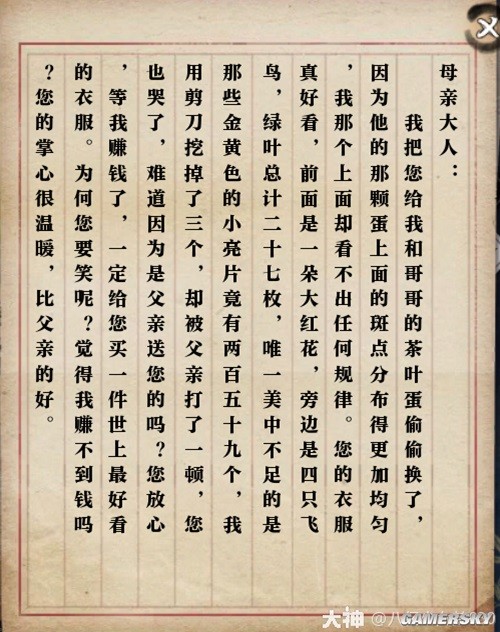 母亲大人：
我把您给我和哥哥的茶叶蛋偷偷换了，
因为他的那颗蛋上面的斑点分布得更加均匀
，我那个上面却看不出任何规律。您的衣服
真好看，前面是一朵大红花，旁边是四只飞
鸟，绿叶总计二十七枚，唯一美中不足的是
那些金黄色的小亮片竟有两百五十九个，我
用剪刀挖掉了三个，却被父亲打了一顿，您
也哭了，难道因为是父亲送您的吗？您放心
，等我赚钱了，一定给您买一件世上最好看
的衣服。为何您要笑呢？觉得我赚不到钱吗
？您的掌心很温暖，比父亲的好。
大神 @八
GAMERSKY